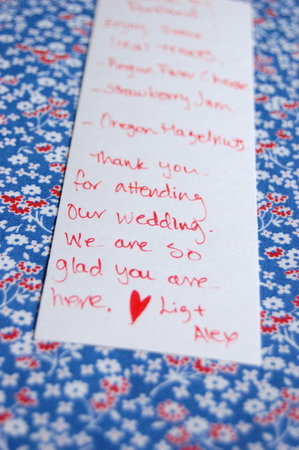 Enjoy some
local treats.
- Rogue River Cheese
- Strawberry Jam
- Oregon Hazelnuts
Thank you
for attending
our wedding.
We are so
glad you are
here. ♥ Liz +
Alex